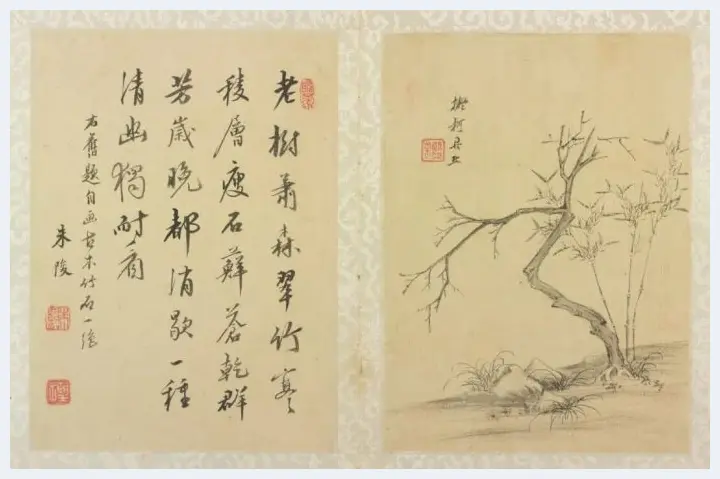 擬柯丹丘
老樹蕭森翠竹寒
稜層瘦石蘚蒼乾群
芳歲晚都消歇一種
清幽獨耐看
右舊題自画古木竹石一絕
朱陵